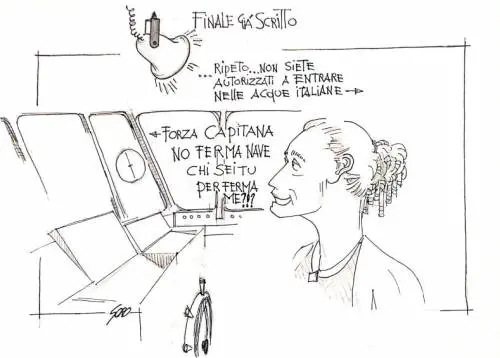 FINALE GIÁ SCRITTO
... RIPETO... NON SIETE
AUTORIZZATI A ENTRARE
NELLE ACQUE ITALIANE →
← FORZA CAPITANA
NO FERMA NAVE
CHI SEI TU
PER FERMA
ME?!?